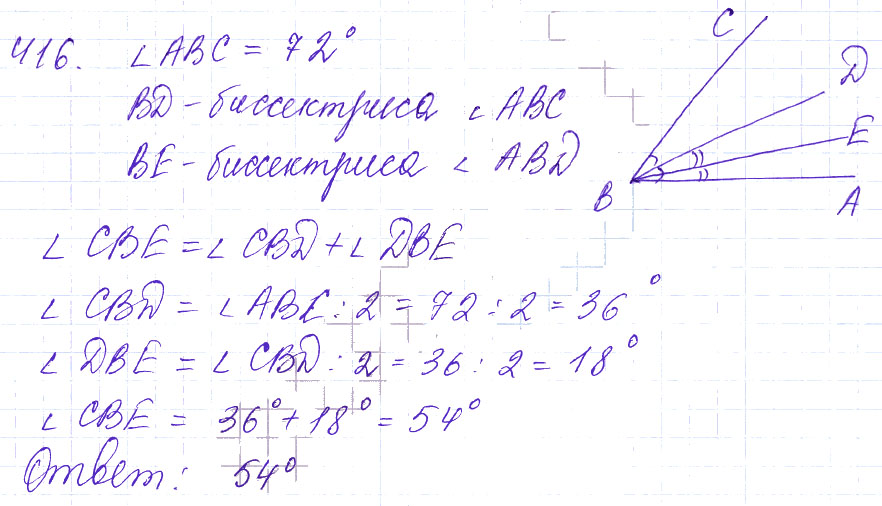 416. ∠ABC = 72°
BD - биссектриса ∠ABC
BE - биссектриса ∠ ABD
∠ CBE = ∠ CBD + ∠ DBE
∠ CBD = ∠ABC : 2 = 72 : 2 = 36°
∠ DBE = ∠ CBD : 2 = 36 : 2 = 18°
∠ CBE = 36° + 18° = 54°
Ответ: 54°
C
D
E
B
A